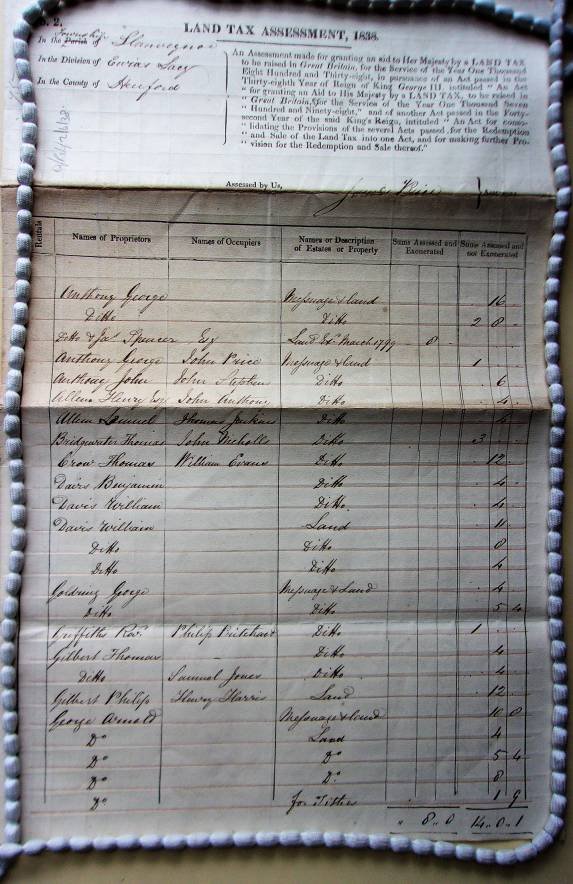 LAND TAX ASSESSMENT, 1838.
In the Parish Township of Llanveynoe
In the Division of Ewias Lacy
In the County of Hereford
An Assessment made for granting an aid to Her Majesty by a LAND TAX
to be raised in Great Britain, for the Service of the Year One Thousand
Eight Hundred and Thirty-eight, in pursuance of an Act passed in the
Thirty-eighth Year of Reign of King George III. intituled "An Act
"for granting an Aid to His Majesty by a LAND TAX, to be raised in
"Great Britain, for the Service of the Year One Thousand Seven
"Hundred and Ninety-eight," and of another Act passed in the Forty-
second Year of the said King's Reign, intituled "An Act for conso-
"lidating the Provisions of the several Acts passed, for the Redemption
"and Sale of the Land Tax into one Act, and for making further Pro-
"vision for the Redemption and Sale thereof."
Assessed by Us, James Price
Rentals Names of Proprietors Names of Occupiers Names or Description of Estates or Property Sums Assessed and Exonerated Sums Assessed and not Exonerated
Anthony George Messuage & Land 16
Ditto Ditto 2 8
Ditto & Jas Spencer Esq Land Exd March 1799 8
Anthony George John Price Messuage & land 1
Anthony John John Stephens Ditto 6
Allen Henry Esq John Anthony Ditto 4
Allen Samuel Thomas Jenkins Ditto
Bridgwater Thomas John Nicholls Ditto 3
Crow Thomas William Evans Ditto 12
Davis Benjamin Ditto 4
Davis William Ditto 4
Davis William Land 11
Ditto Ditto 8
Ditto Ditto 4
George Messuage & Land 4
Ditto Ditto 5 4
Griffiths Revd Philip Pritchard Ditto 1
Gilbert Thomas - Ditto 4
Ditto Samuel Jones Ditto 4
Gilbert Philip Henry Harris Land 12
George Arnold Messuage & Land 10 8
Do Land 4
Do Do 5 4
Do Do 8
Do for Tithes 1 9
" 8 " 0 14 " 0 " 1